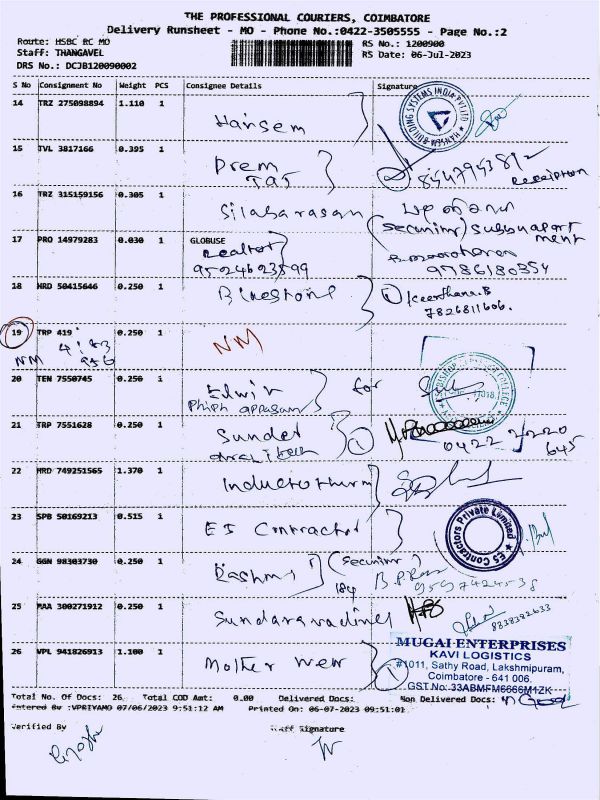 THE PROFESSIONAL COURIERS, COIMBATORE
Delivery Runsheet - MO - Phone No.:0422-3505555 - Page No.:2
Route: HSBC RC MO
Staff: THANGAVEL
DRS No.: DCJB120090002
RS No.: 1200900
RS Date: 06-Jul-2023
S No Consignment No Weight PCS Consignee Details Signature
14 TRZ 275098894 1.110 1 Hansem
15 TVL 3817166 0.395 1 Prem
Receiption
16 TRZ 315159156 0.305 1 Silabarasan
17 PRO 14979283 0.030 1 GLOBUSE
Realtor
9524623899
9786180354
18 HRD 50415646 0.250 1 Bluestone Keerthana.B
7826811606.
19 TRP 419 0.250 1 NM
NM
20 TEN 7550745 0.250 1 Edwin for
21 TRP 7551628 0.250 1 Sunder
0422
22 HRD 749251565 1.370 1 Inductotherm
23 SPB 50169213 0.515 1 ES Contractor
ES Contractors Private Limited
24 GGN 98303730 0.250 1 Rashmi
25 MAA 300271912 0.250 1
26 VPL 941826913 1.100 1 Mother
MUGAI ENTERPRISES
KAVI LOGISTICS
#1011, Sathy Road, Lakshmipuram,
Coimbatore - 641 006.
GST No: 33ABMFM6666M1ZK
Total No. Of Docs: 26 Total COD Amt: 0.00 Delivered Docs: Non Delivered Docs:
Entered By :VPRIYAMO 07/06/2023 9:51:12 AM Printed On: 06-07-2023 09:51:01
Verified By Staff Signature